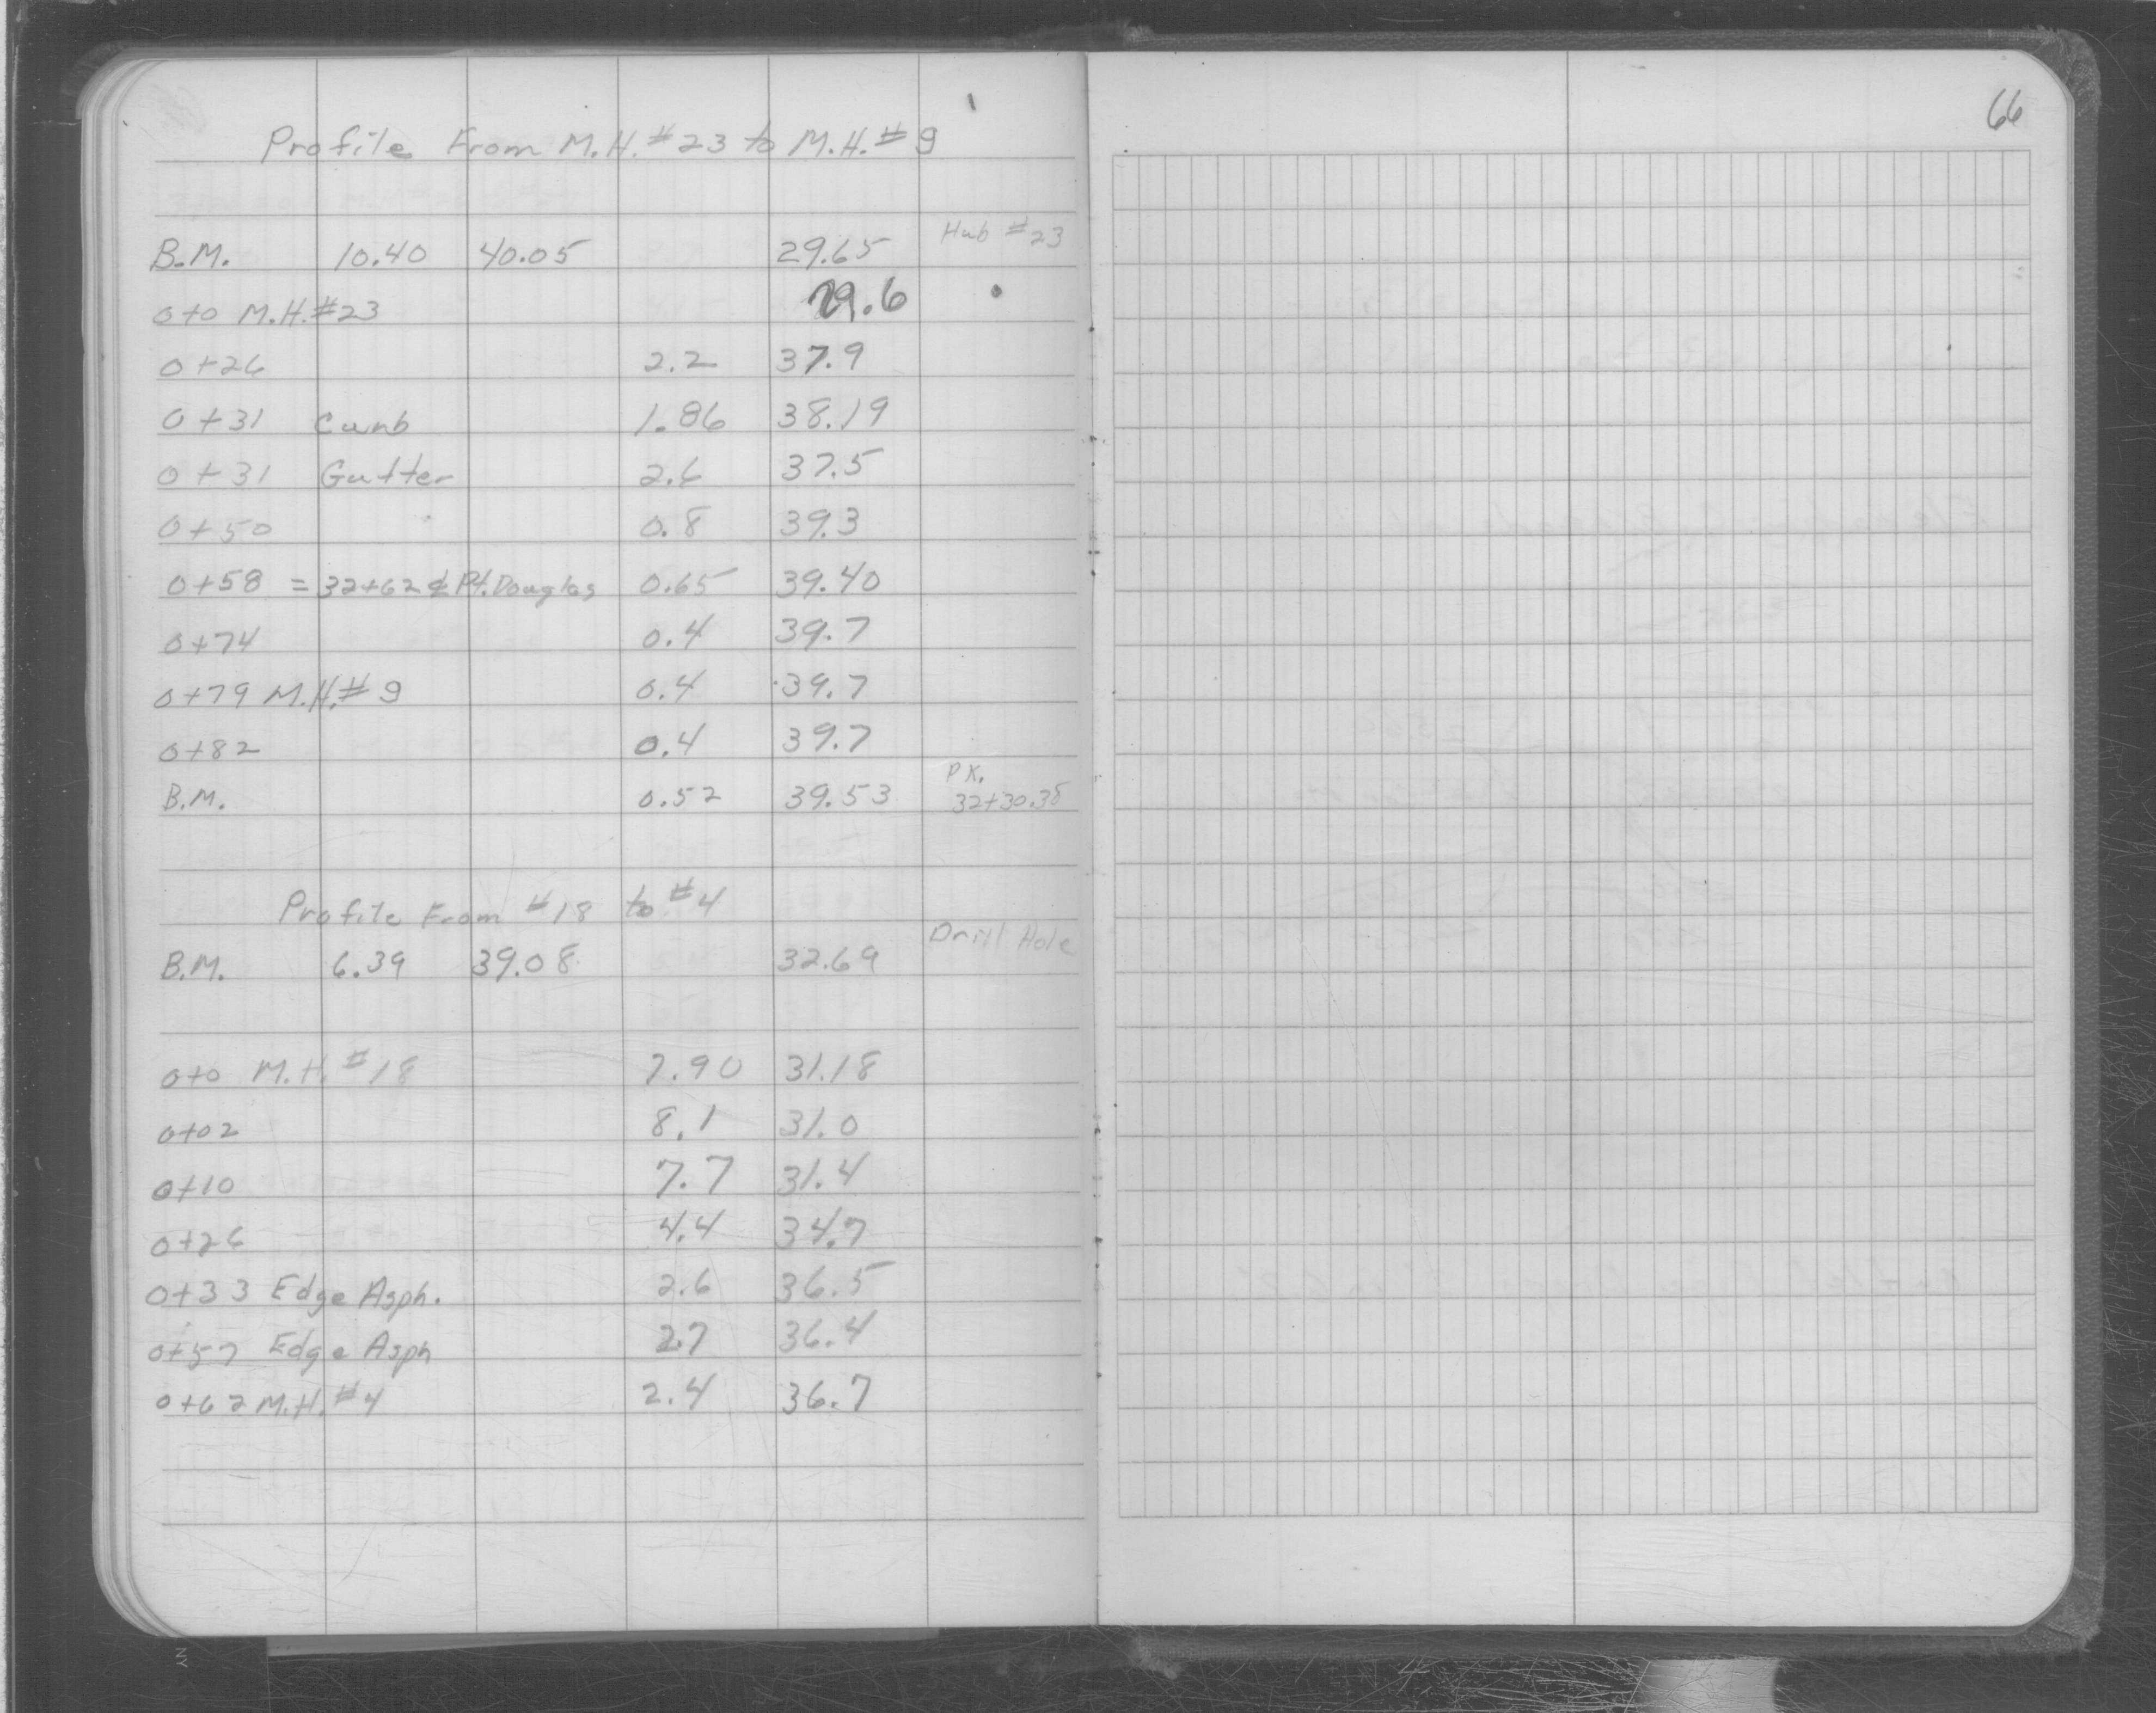 66
Profile From M.H. #23 to M.H. #9
Hub #23
B.M. 10.40 40.05 29.65
0+0 M.H. #23 29.6
0+26 2.2 37.9
0+31 Curb 1.86 38.19
0+31 Gutter 2.6 37.5
0+50 0.8 39.3
0+58 = 32+62 ℄ Pt. Douglas 0.65 39.40
0+74 0.4 39.7
0+79 M.H. #9 0.4 39.7
0+82 0.4 39.7
P.K.
B.M. 0.52 39.53 32+30.38
Profile From #18 to #4
Drill Hole
B.M. 6.39 39.08 32.69
0+0 M.H. #18 7.90 31.18
0+02 8.1 31.0
0+10 7.7 31.4
0+26 4.4 34.7
0+33 Edge Asph. 2.6 36.5
0+57 Edge Asph 2.7 36.4
0+62 M.H. #4 2.4 36.7
NY